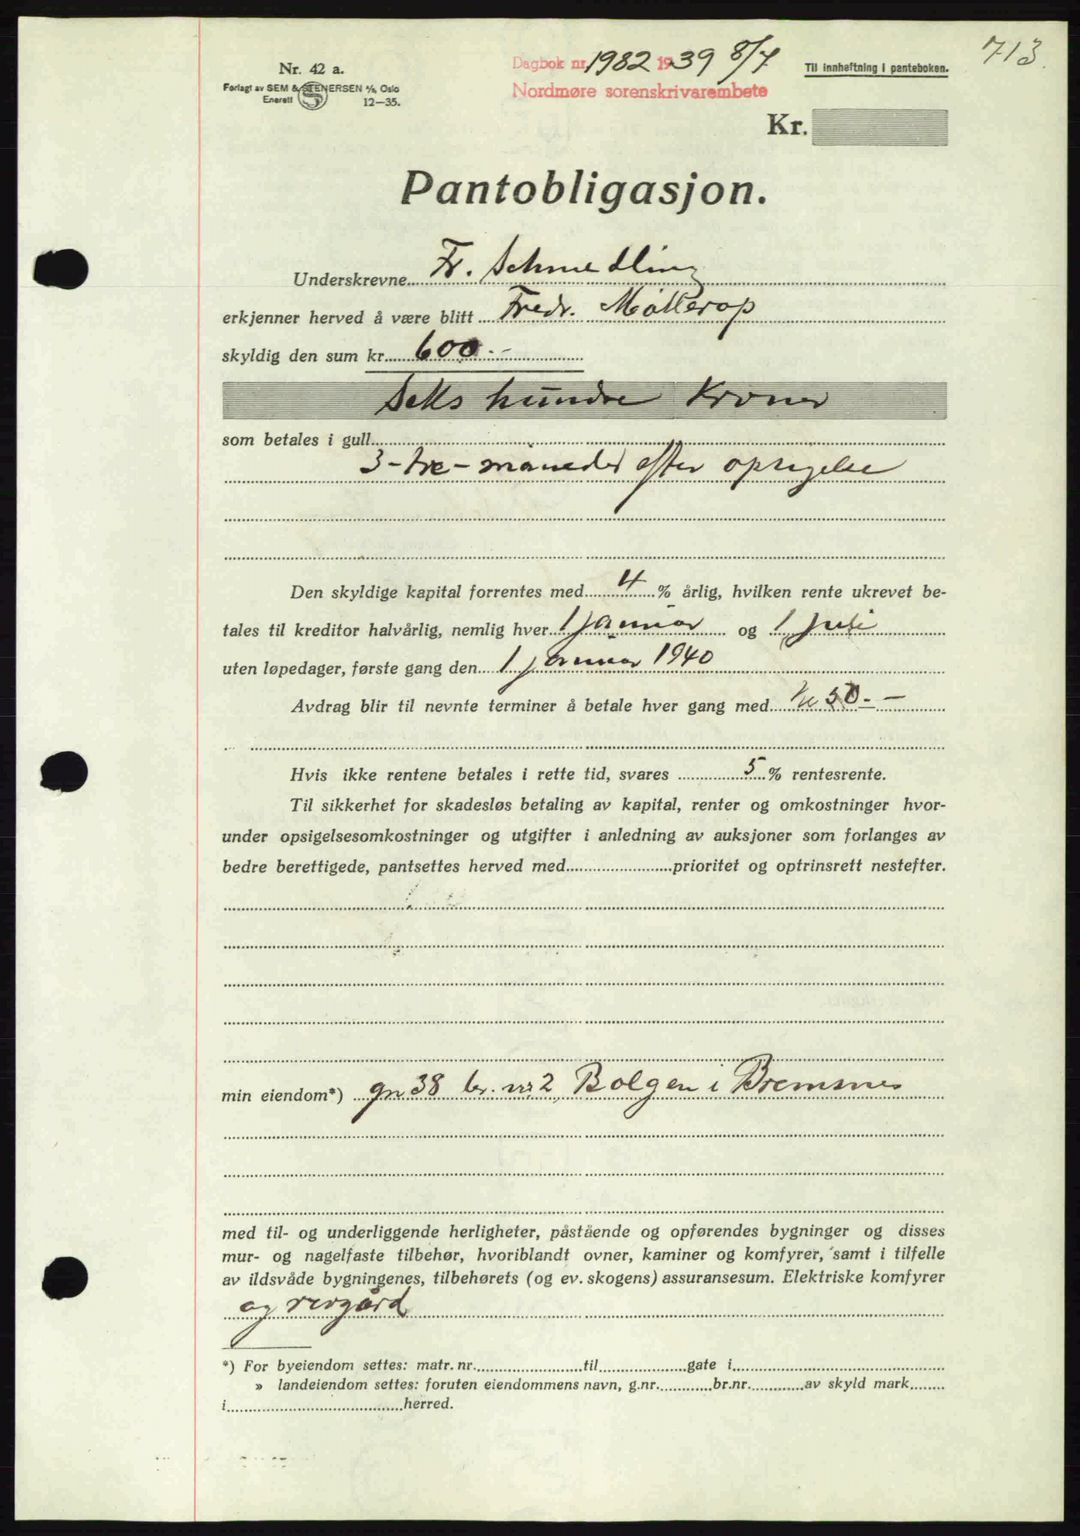 713.
Dagbok nr. 1982 1939 8/7
Nordmøre sorenskrivarembete
Til innheftning i panteboken.
Nr. 42 a.
Forlagt av SEM & STENERSEN A/S, Oslo
Enerett 12—35.
Kr.
Pantobligasjon.
Underskrevne Fr. Schmedling
erkjenner herved å være blitt Fredr. Møllerop
skyldig den sum kr. 600.-
Seks hundre Kroner
som betales i gull
3-tre-måneder efter opsigelse
Den skyldige kapital forrentes med 4 % årlig, hvilken rente ukrevet be-
tales til kreditor halvårlig, nemlig hver 1 januar og 1 juli
uten løpedager, første gang den 1 januar 1940
Avdrag blir til nevnte terminer å betale hver gang med kr 50.-
Hvis ikke rentene betales i rette tid, svares 5 % rentesrente.
Til sikkerhet for skadesløs betaling av kapital, renter og omkostninger hvor-
under opsigelsesomkostninger og utgifter i anledning av auksjoner som forlanges av
bedre berettigede, pantsettes herved med prioritet og optrinsrett nestefter.
min eiendom*) gnr 38 br. nr. 2, Bolgen i Bremsnes
med til- og underliggende herligheter, påstående og opførendes bygninger og disses
mur- og nagelfaste tilbehør, hvoriblandt ovner, kaminer og komfyrer, samt i tilfelle
av ildsvåde bygningenes, tilbehørets (og ev. skogens) assuransesum. Elektriske komfyrer
og revgård
*) For byeiendom settes: matr. nr. til gate i
» landeiendom settes: foruten eiendommens navn, g.nr. br.nr. av skyld mark
i herred.